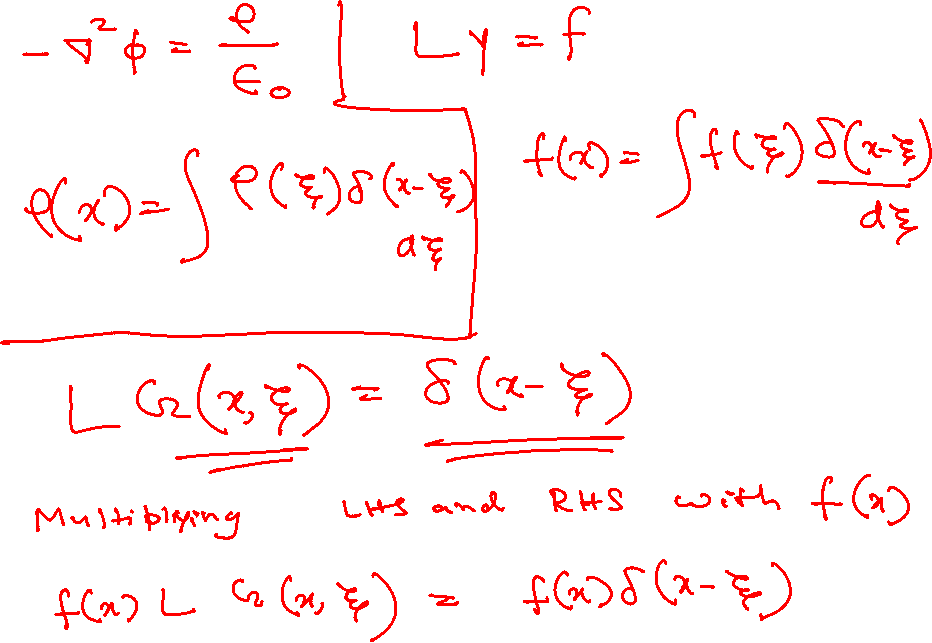 -∇²φ = ρ/ε₀
ρ(x) = ∫ρ(ξ)δ(x-ξ)dξ
Ly = f
f(x) = ∫f(ξ)δ(x-ξ)dξ
LG(x,ξ) = δ(x-ξ)
Multiplying LHS and RHS with f(x)
f(x)LG(x,ξ) = f(x)δ(x-ξ)